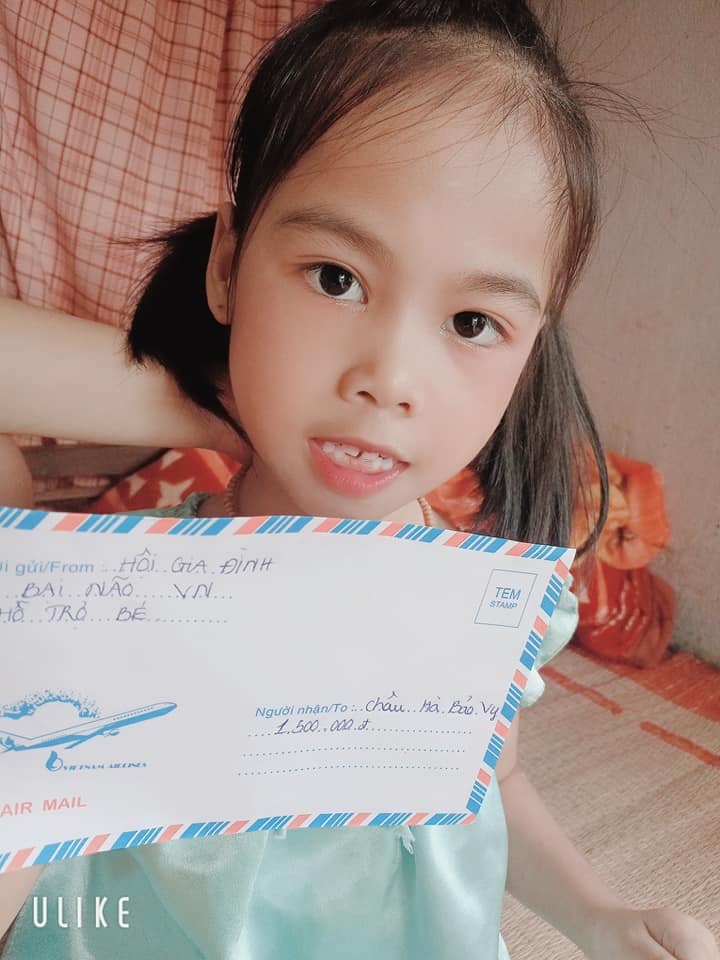 i gửi/From :..HỘI..GIA..ĐÌNH
BẠI..NÃO.....VN...
HỖ..TRỢ..BÉ...........
TEM
STAMP
Người nhận/To :..Châu..Hà..Bảo..Vy
1.500.000.đ
VIETNAM AIRLINES
AIR MAIL
ULIKE